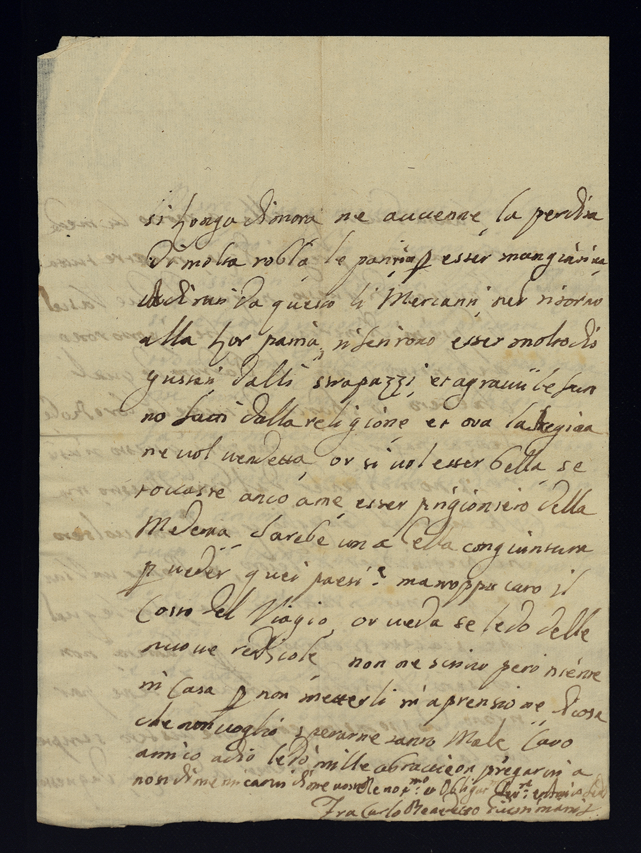 si longa dimora ne auuenne la perdita
di molta robba le patirà p esser mangiati
da questo li Mercanti nel ritorno
alla lor patria, riferirono esser molto dis
gustati dalli strapazzi et agrauii le fan
no fatti dalla religione et ora la Regina
ne vol vendetta, or si vol esser bella se
toccasse anco a me esser prigioniero della
Medema, sarebe una bella congiuntura
p veder quei paesi, ma troppo caro il
Costo del Viagio, or veda se le do delle
nuoue redicole non ne scriuo pero niente
in Casa p non metterli in aprensione di cosa
che non voglio sperarne tanto Male Caro
amico adio le do mille abracci et pregarui a
non dimenticarui di me
Fra Carlo Benedetto Giustiniani